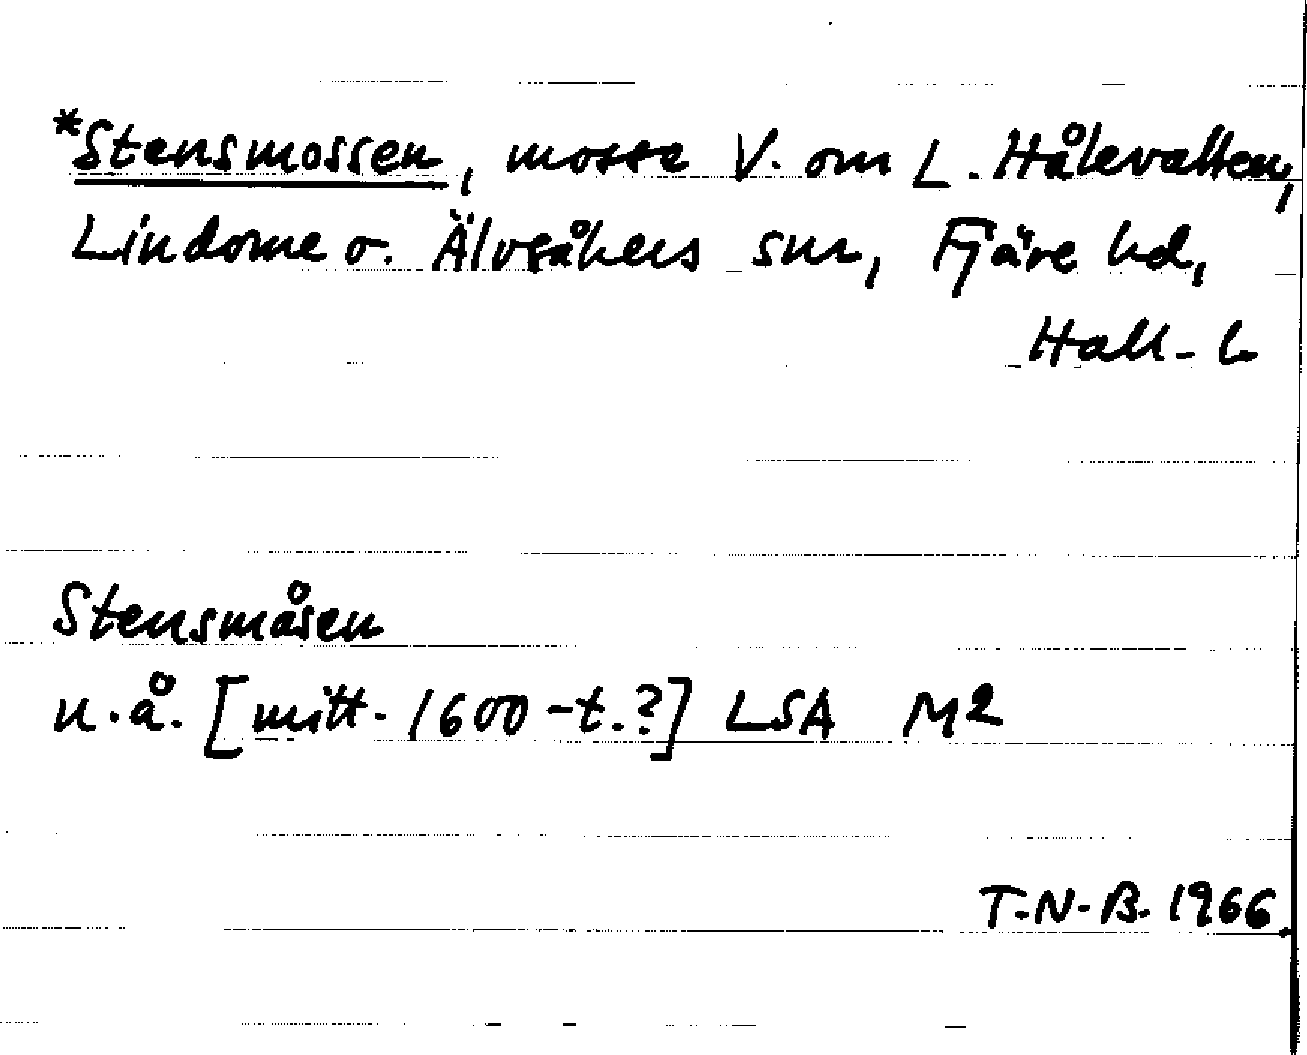 *Stensmossen, mosse V. om L. Hålevatten,
Lindome o. Älvsåkers snr, Fjäre hd,
Hall. l.
Stensmåsen
u.å. [mitt. 1600-t.?] LSA M2
T.N.B. 1966.